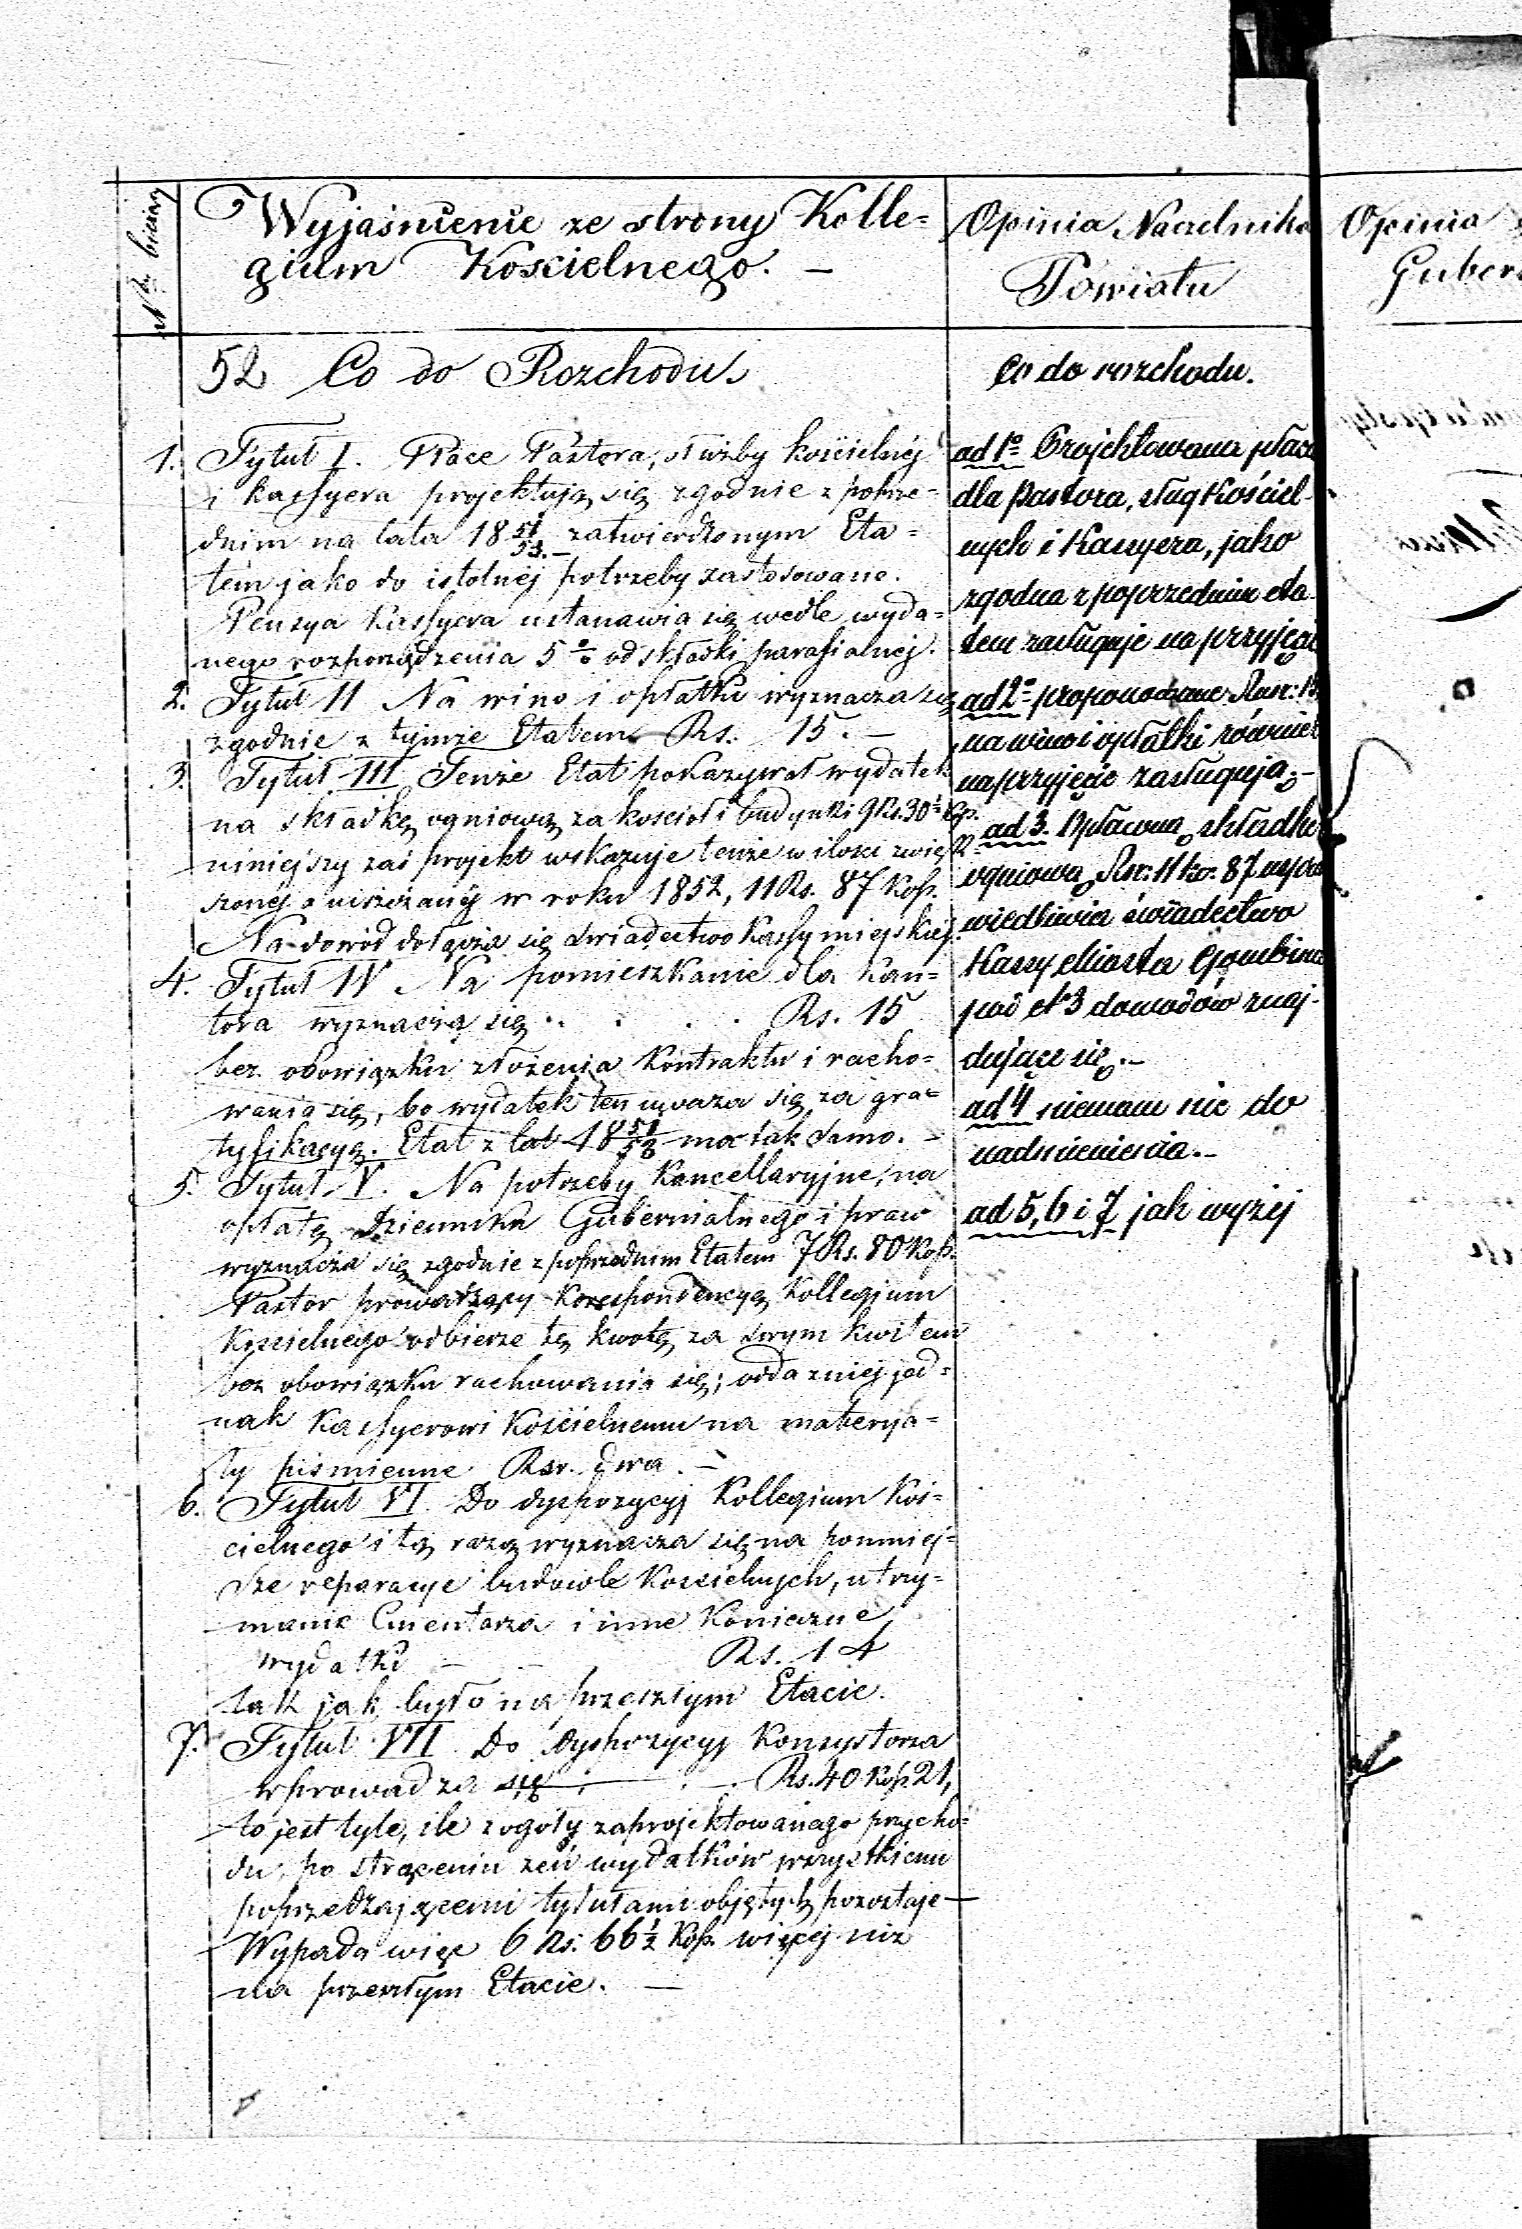 Nr. bieżący
Wyjaśnienie ze strony Kolle=
gium Kościelnego. —
52 Co do Rozchodu.
1. Tytuł I. Płace Pastora, służby kościelnéj
i kassyera projektują się zgodnie z poprze=
dnim na lata 18 51/53. zatwierdzonym Eta=
tém jako do istotnéj potrzeby zastosowane.
Pensya Kassyera ustanawia się wedle wyda=
nego rozporządzenia 5 % od składki parafialnej.
2. Tytuł II Na wino i opłatki wyznacza się
zgodnie z tymże Etatem Rs. 15. —
3. Tytuł III Tenże Etat pokazywał wydatek
na składkę ogniową za kościoł i budynki 9 Rs. 30 ½ Kop.
niniejszy zaś projekt wskazuje tenże w ilości zwięk
szonéj a uiszczanéj w roku 1852, 11 Rs. 87 Kop.
Na dowód dołącza się świadectwo Kassy miejskiéj.
4. Tytuł IV Na pomieszkanie dla Kan=
tora wyznacza się . . . . . Rs. 15
bez obowiązku złożenia Kontraktu i racho=
wania się, bo wydatek ten uważa się za gra=
tyfikacyę. Etat z lat 18 51/53 ma tak samo. —
5. Tytuł V. Na potrzeby Kancellaryjne, na
opłatę Dziennika Gubernialnego i praw
wyznacza się zgodnie z poprzednim Etatem 7 Rs. 80 Kop.
Pastor prowadzący Korespondencyę Kollegium
Kościelnego odbierze tę kwotę za swym kwitem
bez obowiązku rachowania się; odda z niej jed=
nak Kassyerowi Kościelnemu na materya=
ły piśmienne Rsr. dwa. —
6. Tytuł VI. Do dyspozycyj Kollegium Koś=
cielnego i tą razą wyznacza się na pomniej=
sze reparacye budowle Kościelnych, utrzy=
manie Cmentarza i inne Konieczne
wydatki — — Rs. 14
tak jak było na przeszłym Etacie.
7. Tytuł VII Do dyspozycyj Konsystorza
wprowadza się . . — Rs. 40 Kop. 21,
to jest tyle, ile z ogóły zaprojektowanego przycho=
du, po strąceniu zeń wydatków wszystkiemi
poprzedzającemi tytułami objętych pozostaje —
Wypada więc 6 Rs. 66 ½ Kop. więcej niż
na przeszłym Etacie. —
Opinia Naczelnika
Powiatu
Co do rozchodu.
ad 1o Projektowana płaca
dla Pastora, sług Kościel-
nych i Kassyera, jako
zgodna z poprzednim eta
tem zasługuje na przyjęcie
ad 2o proponowane Rusr: 15
na wino i opłatki również
na przyjęcie zasługują. —
ad 3. Opłacną składkę
ogniową Rsr: 11 ko: 87 uspra
wiedliwia świadectwo
Kassy Miasta Gombina
pod N 3 dowodów znaj-
dujące się. —
ad 4 niemam nic do
nadmienienia. —
ad 5, 6 i 7 jak wyżej
Opinia
Guber